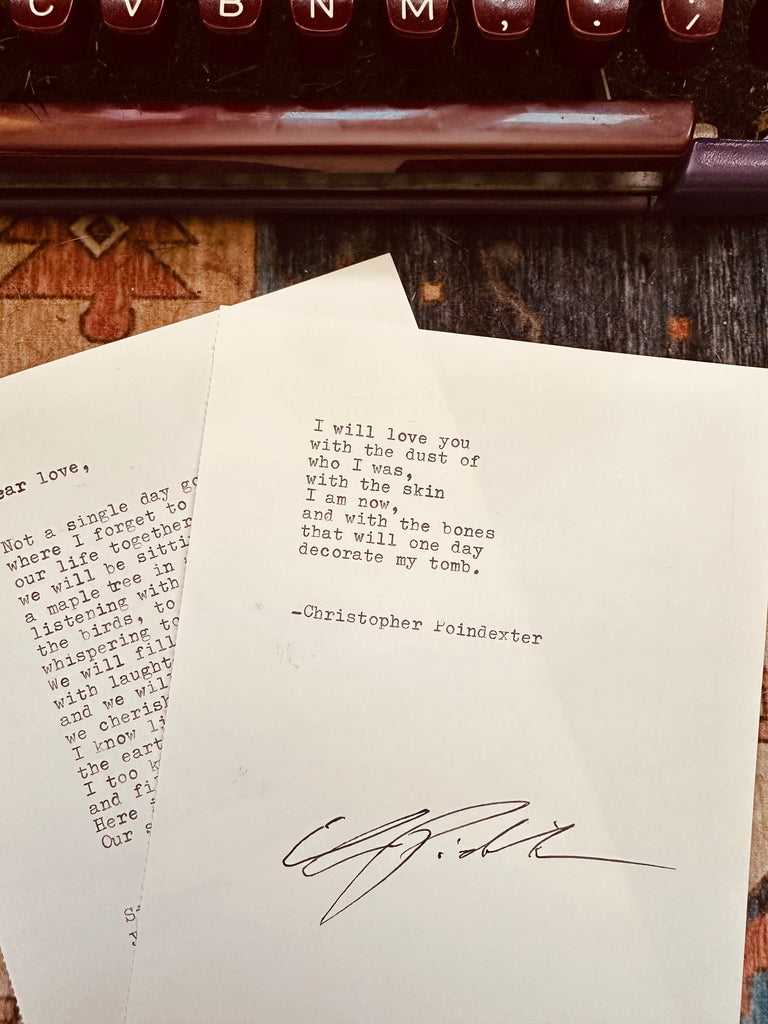 C V B N M , . /
ear love,
Not a single day go
where I forget to
our life together
we will be sitti
a maple tree in
listening with
the birds, to
whispering to
we will fill
with laught
and we wil
we cherish
I know li
the eart
I too k
and fi
Here
Our s
S
I will love you
with the dust of
who I was,
with the skin
I am now,
and with the bones
that will one day
decorate my tomb.
-Christopher Poindexter